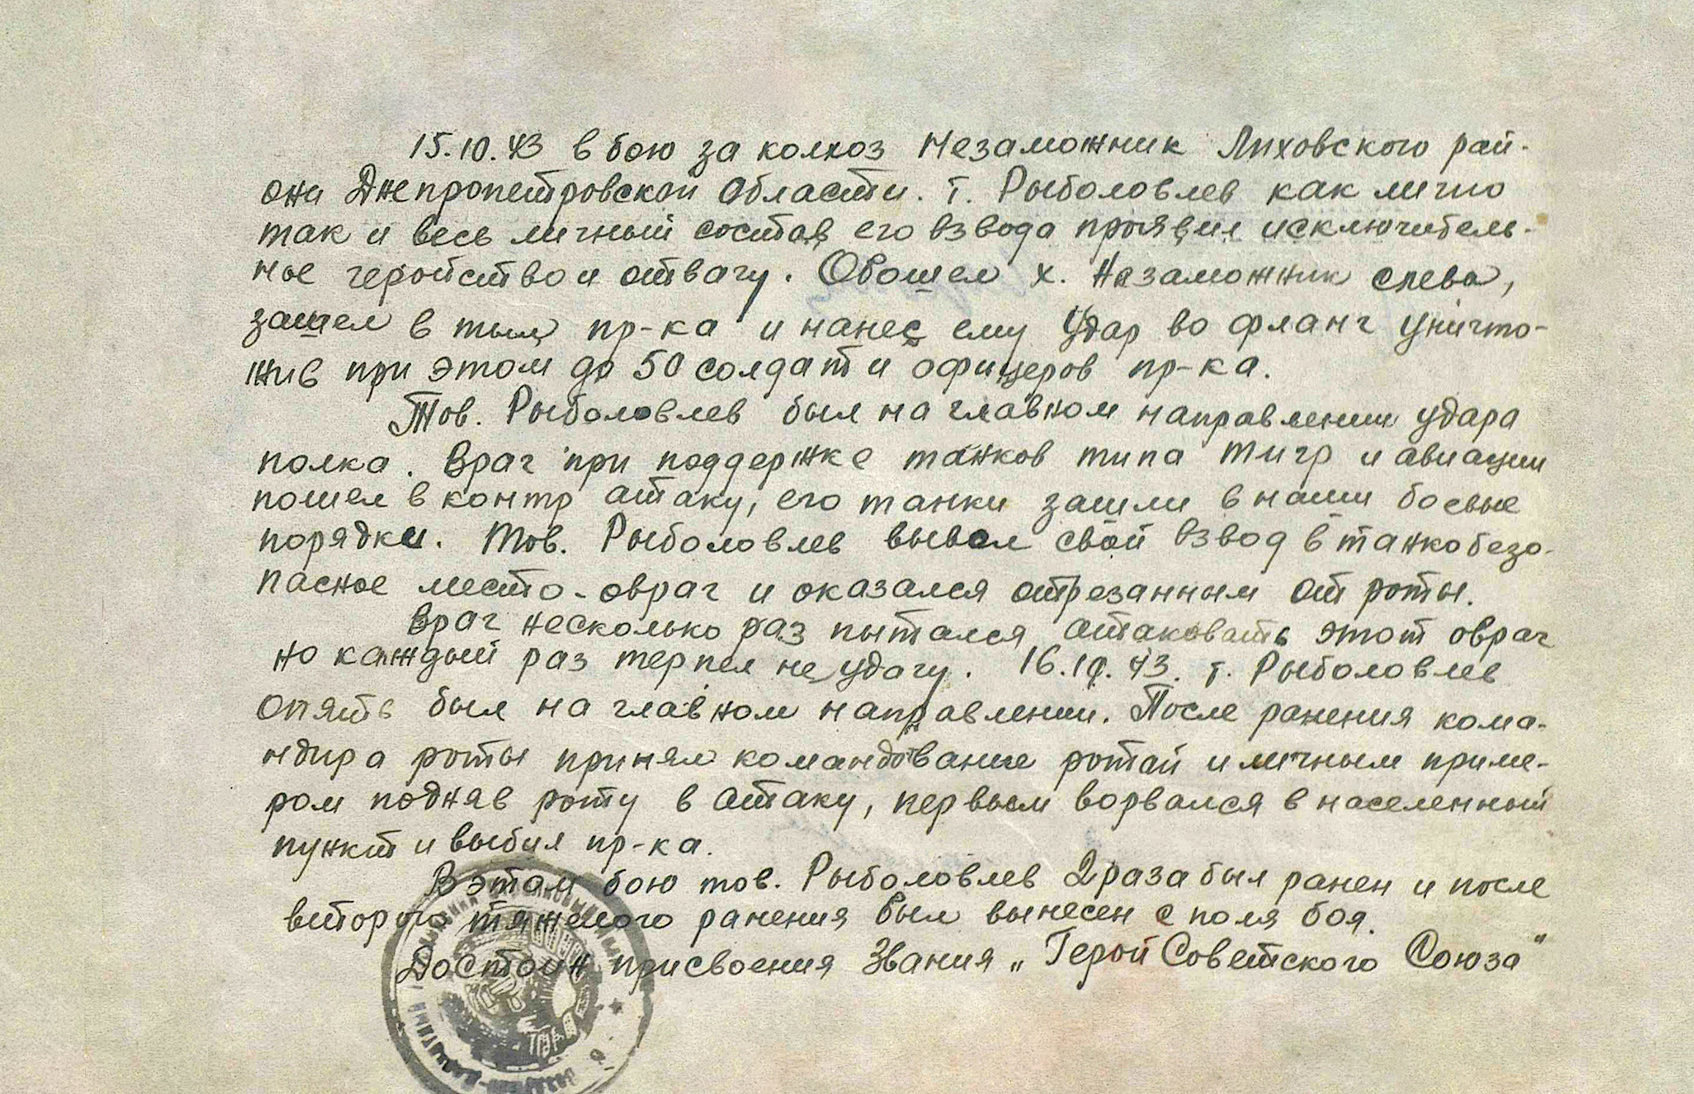 15.10.43 в бою за колхоз Незаможник Лиховского рай-
она Днепропетровской области. т. Рыболовлев как лично
так и весь личный состав его взвода проявил исключитель-
ное геройство и отвагу. Обошел х. Незаможник слева,
зашел в тыл пр-ка и нанес ему удар во фланг уничто-
жив при этом до 50 солдат и офицеров пр-ка.
Тов. Рыболовлев был на главном направлении удара
полка. Враг при поддержке танков типа тигр и авиации
пошел в контр атаку, его танки зашли в наши боевые
порядки. Тов. Рыболовлев вывел свой взвод в танкобезо-
пасное место - овраг и оказался отрезанным от роты.
Враг несколько раз пытался атаковать этот овраг
но каждый раз терпел не удачу. 16.10.43. т. Рыболовлев
опять был на главном направлении. После ранения кома-
ндира роты принял командование ротой и личным приме-
ром подняв роту в атаку, первым ворвался в населенный
пункт и выбил пр-ка.
В этом бою тов. Рыболовлев 2 раза был ранен и после
второго тяжелого ранения был вынесен с поля боя.
Достоин присвоения Звания „Герой Советского Союза"